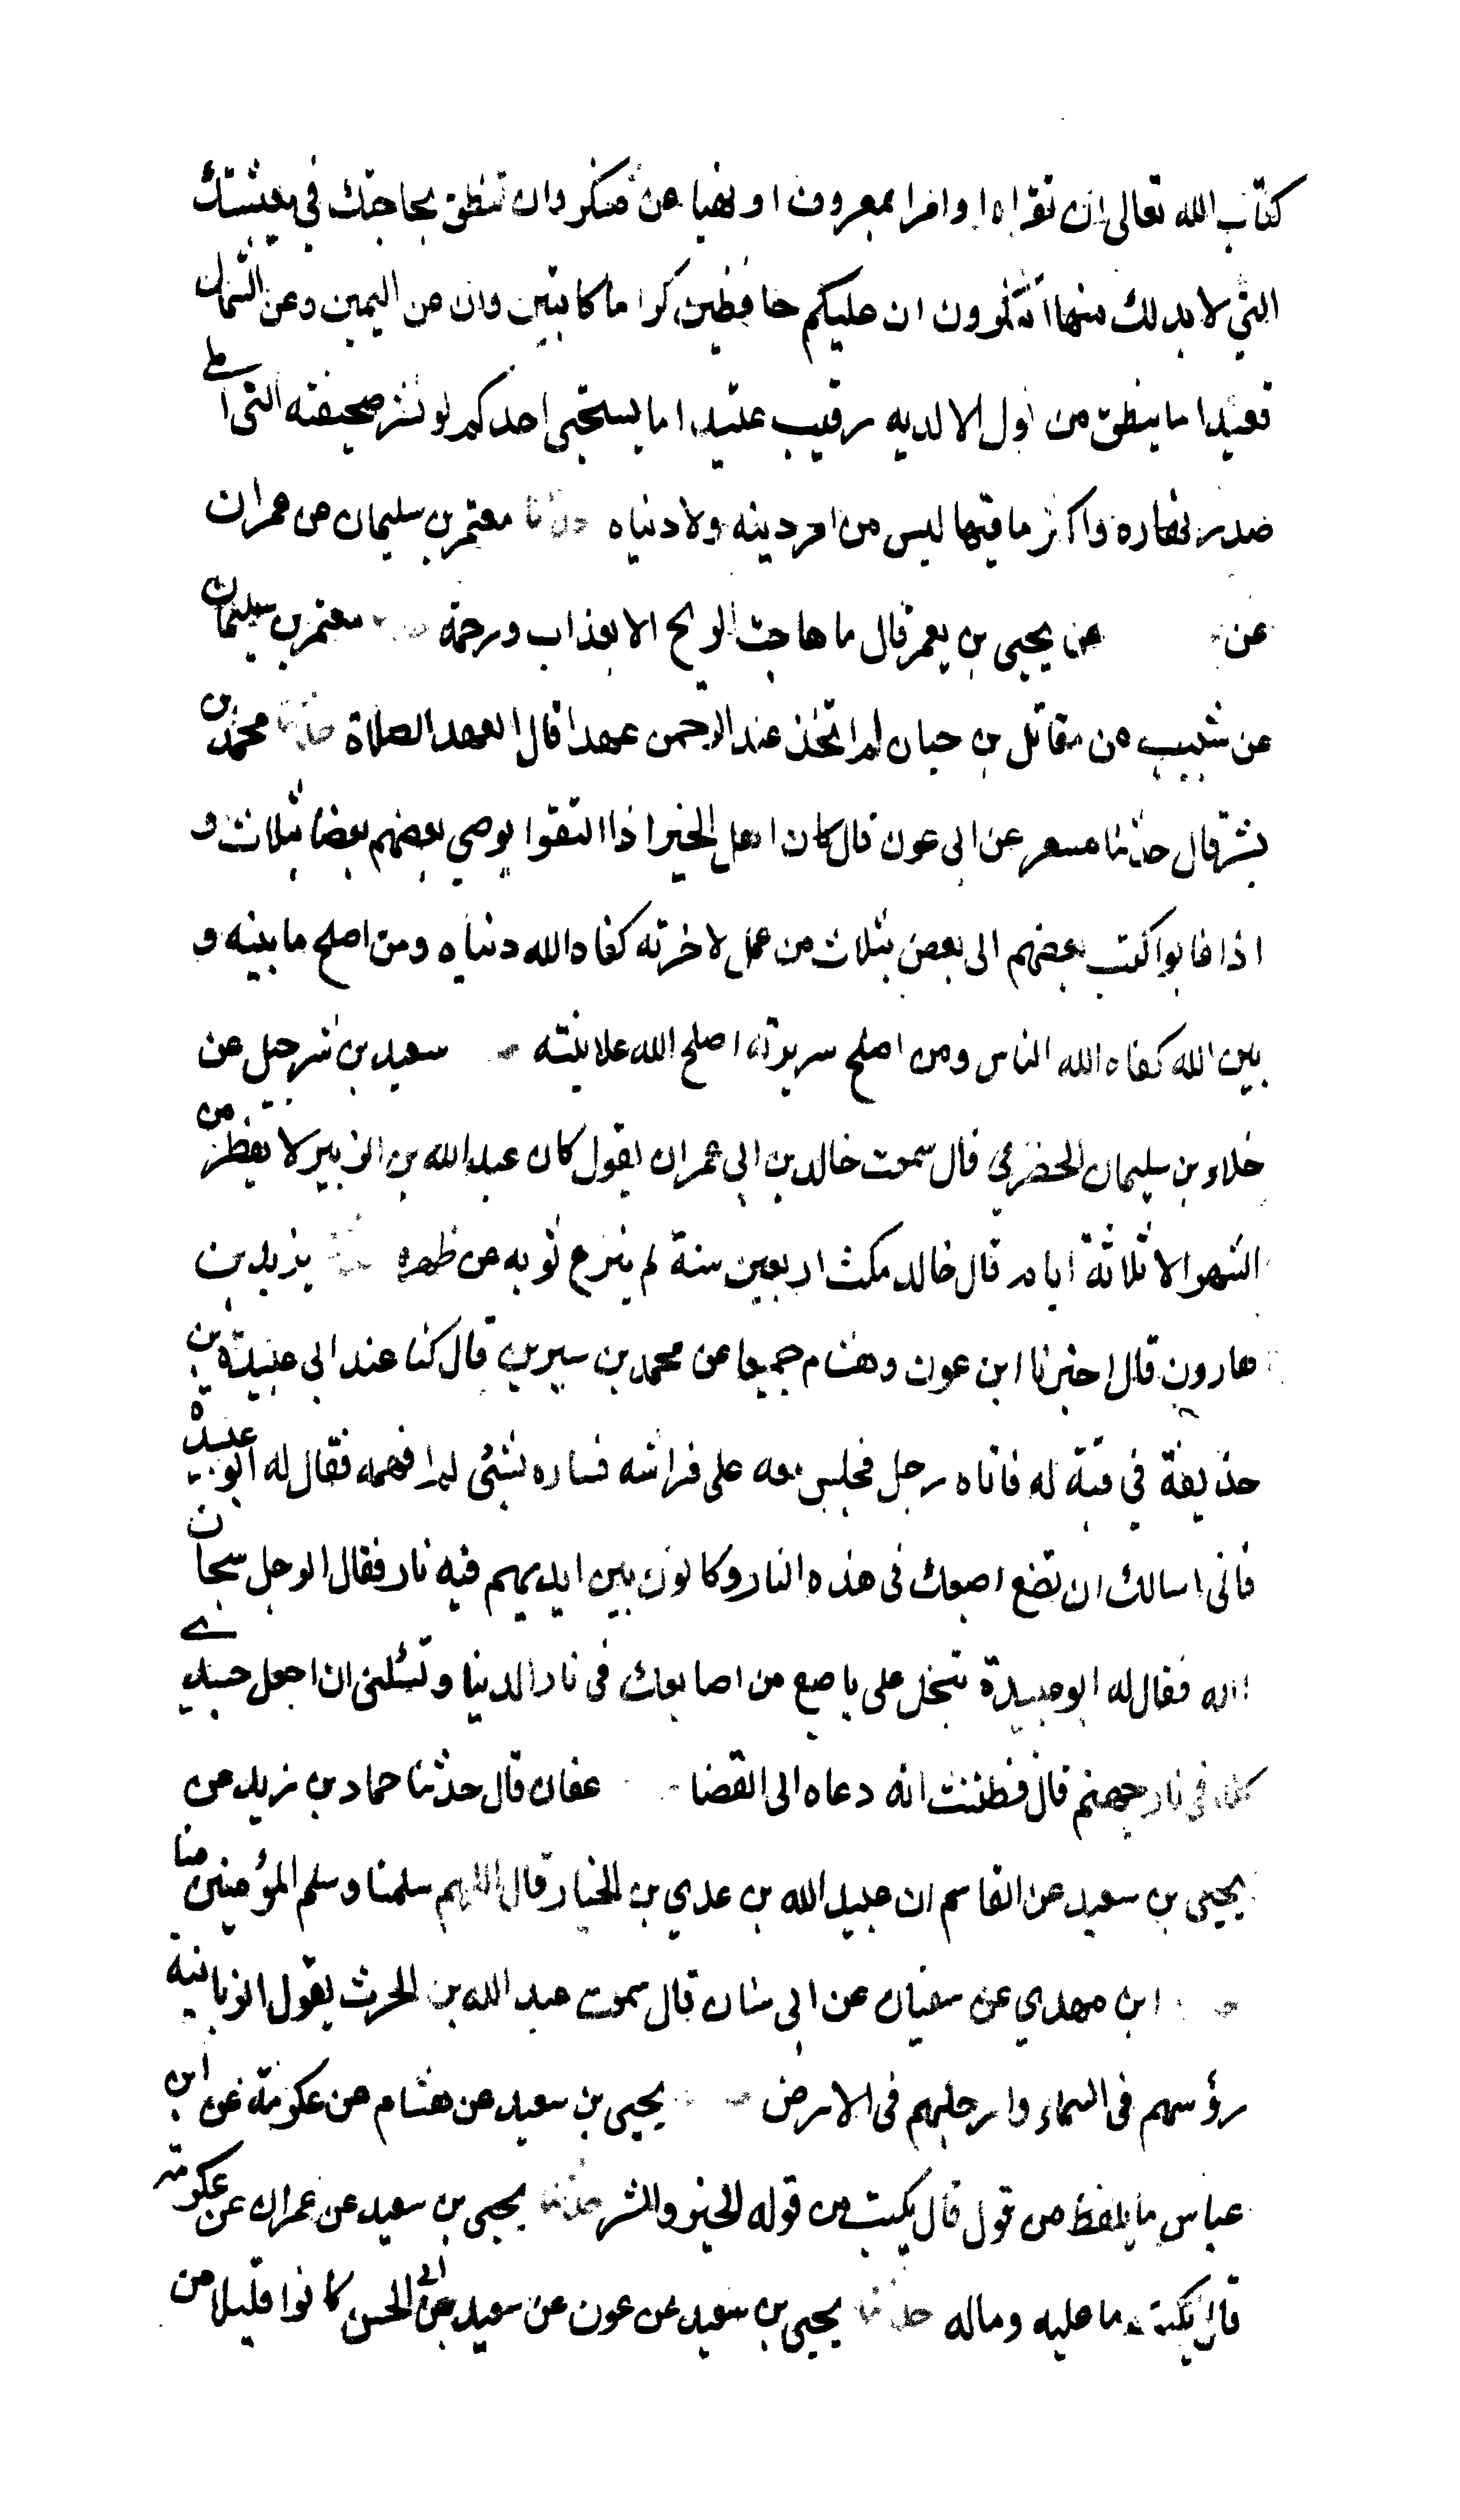 كتاب الله تعالى ان تقراه او امرا بمعروف او نهيا عن منكر وان تنطق بحاجتك في معيشتك
التي لا بد لك منها اتنكرون ان عليكم حافظين كراما كاتبين وان عن اليمين وعن الشمال
قعيد ما ينطق من قول الا لديه رقيب عتيد اما يستحيى احدكم لو نشر صحيفته التى املى
صدر نهاره واكثر ما فيها ليس من امر دينه ولا دنياه حدثنا معتمر بن سليمان عن عمران
عن عن يحيى بن يعمر قال ما هاجت الريح الا بعذاب ورحمة معتمر بن سليمان
عن شبيب عن مقاتل بن حيان ام اتخذ عند الرحمن عهدا قال العهد الصلاة حدثنا محمد بن
بشر قال حدثنا مسعر عن ابى عون قال كان اهل الخير اذا التقوا يوصي بعضهم بعضا بثلاث و
اذا غابوا كتب بعضهم الى بعض بثلاث من عمل لاخرته كفاه الله دنياه ومن اصلح ما بينه و
بين الله كفاه الله الناس ومن اصلح سريرته اصلح الله علانيته سعيد بن شرحبيل عن
خلاد بن سليمان الحضرمي قال سمعت خالد بن ابى عمران يقول كان عبد الله بن الزبير لا يفطر من
الشهر الا ثلاثة ايام قال خالد مكث اربعين سنة لم ينزع ثوبه عن ظهره يزيد بن
هارون قال اخبرنا ابن عون وهشام جميعا عن محمد بن سيرين قال كنا عند ابى عبيدة بن
حذيفة في قبة له فاتاه رجل فجلس معه على فراشه فساره بشئى لم افهمه فقال له ابو عبيدة
فانى اسالك ان تضع اصبعك فى هذه النار وكانون بين ايديهم فيه نار فقال الرجل سبحان
الله فقال له ابو عبيدة تبخل على باصبع من اصابعك فى نار الدنيا وتسئلنى ان اجعل جسدي
كله فى نار جهنم قال فظننت انه دعاه الى القضا عفان قال حدثنا حماد بن زيد عن
يحيى بن سعيد عن القاسم ان عبيد الله بن عدي بن الخيار قال اللهم سلمنا وسلم المؤمنين منا
ابن مهدي عن سفيان عن ابى سنان قال سمعت عبد الله بن الحرث يقول الزبانية
رؤسهم فى السماء وارجلهم فى الارض يحيى بن سعيد عن هشام عن عكرمة عن ابن
عباس ما يلفظ من قول قال يكتب من قوله الخير والشر حدثنا يحيى بن سعيد عن عمران عن عكرمة
قال يكتب ما عليه وماله حدثنا يحيى بن سعيد عن عون عن سعيد بن ابى الحسن كانوا قليلا من